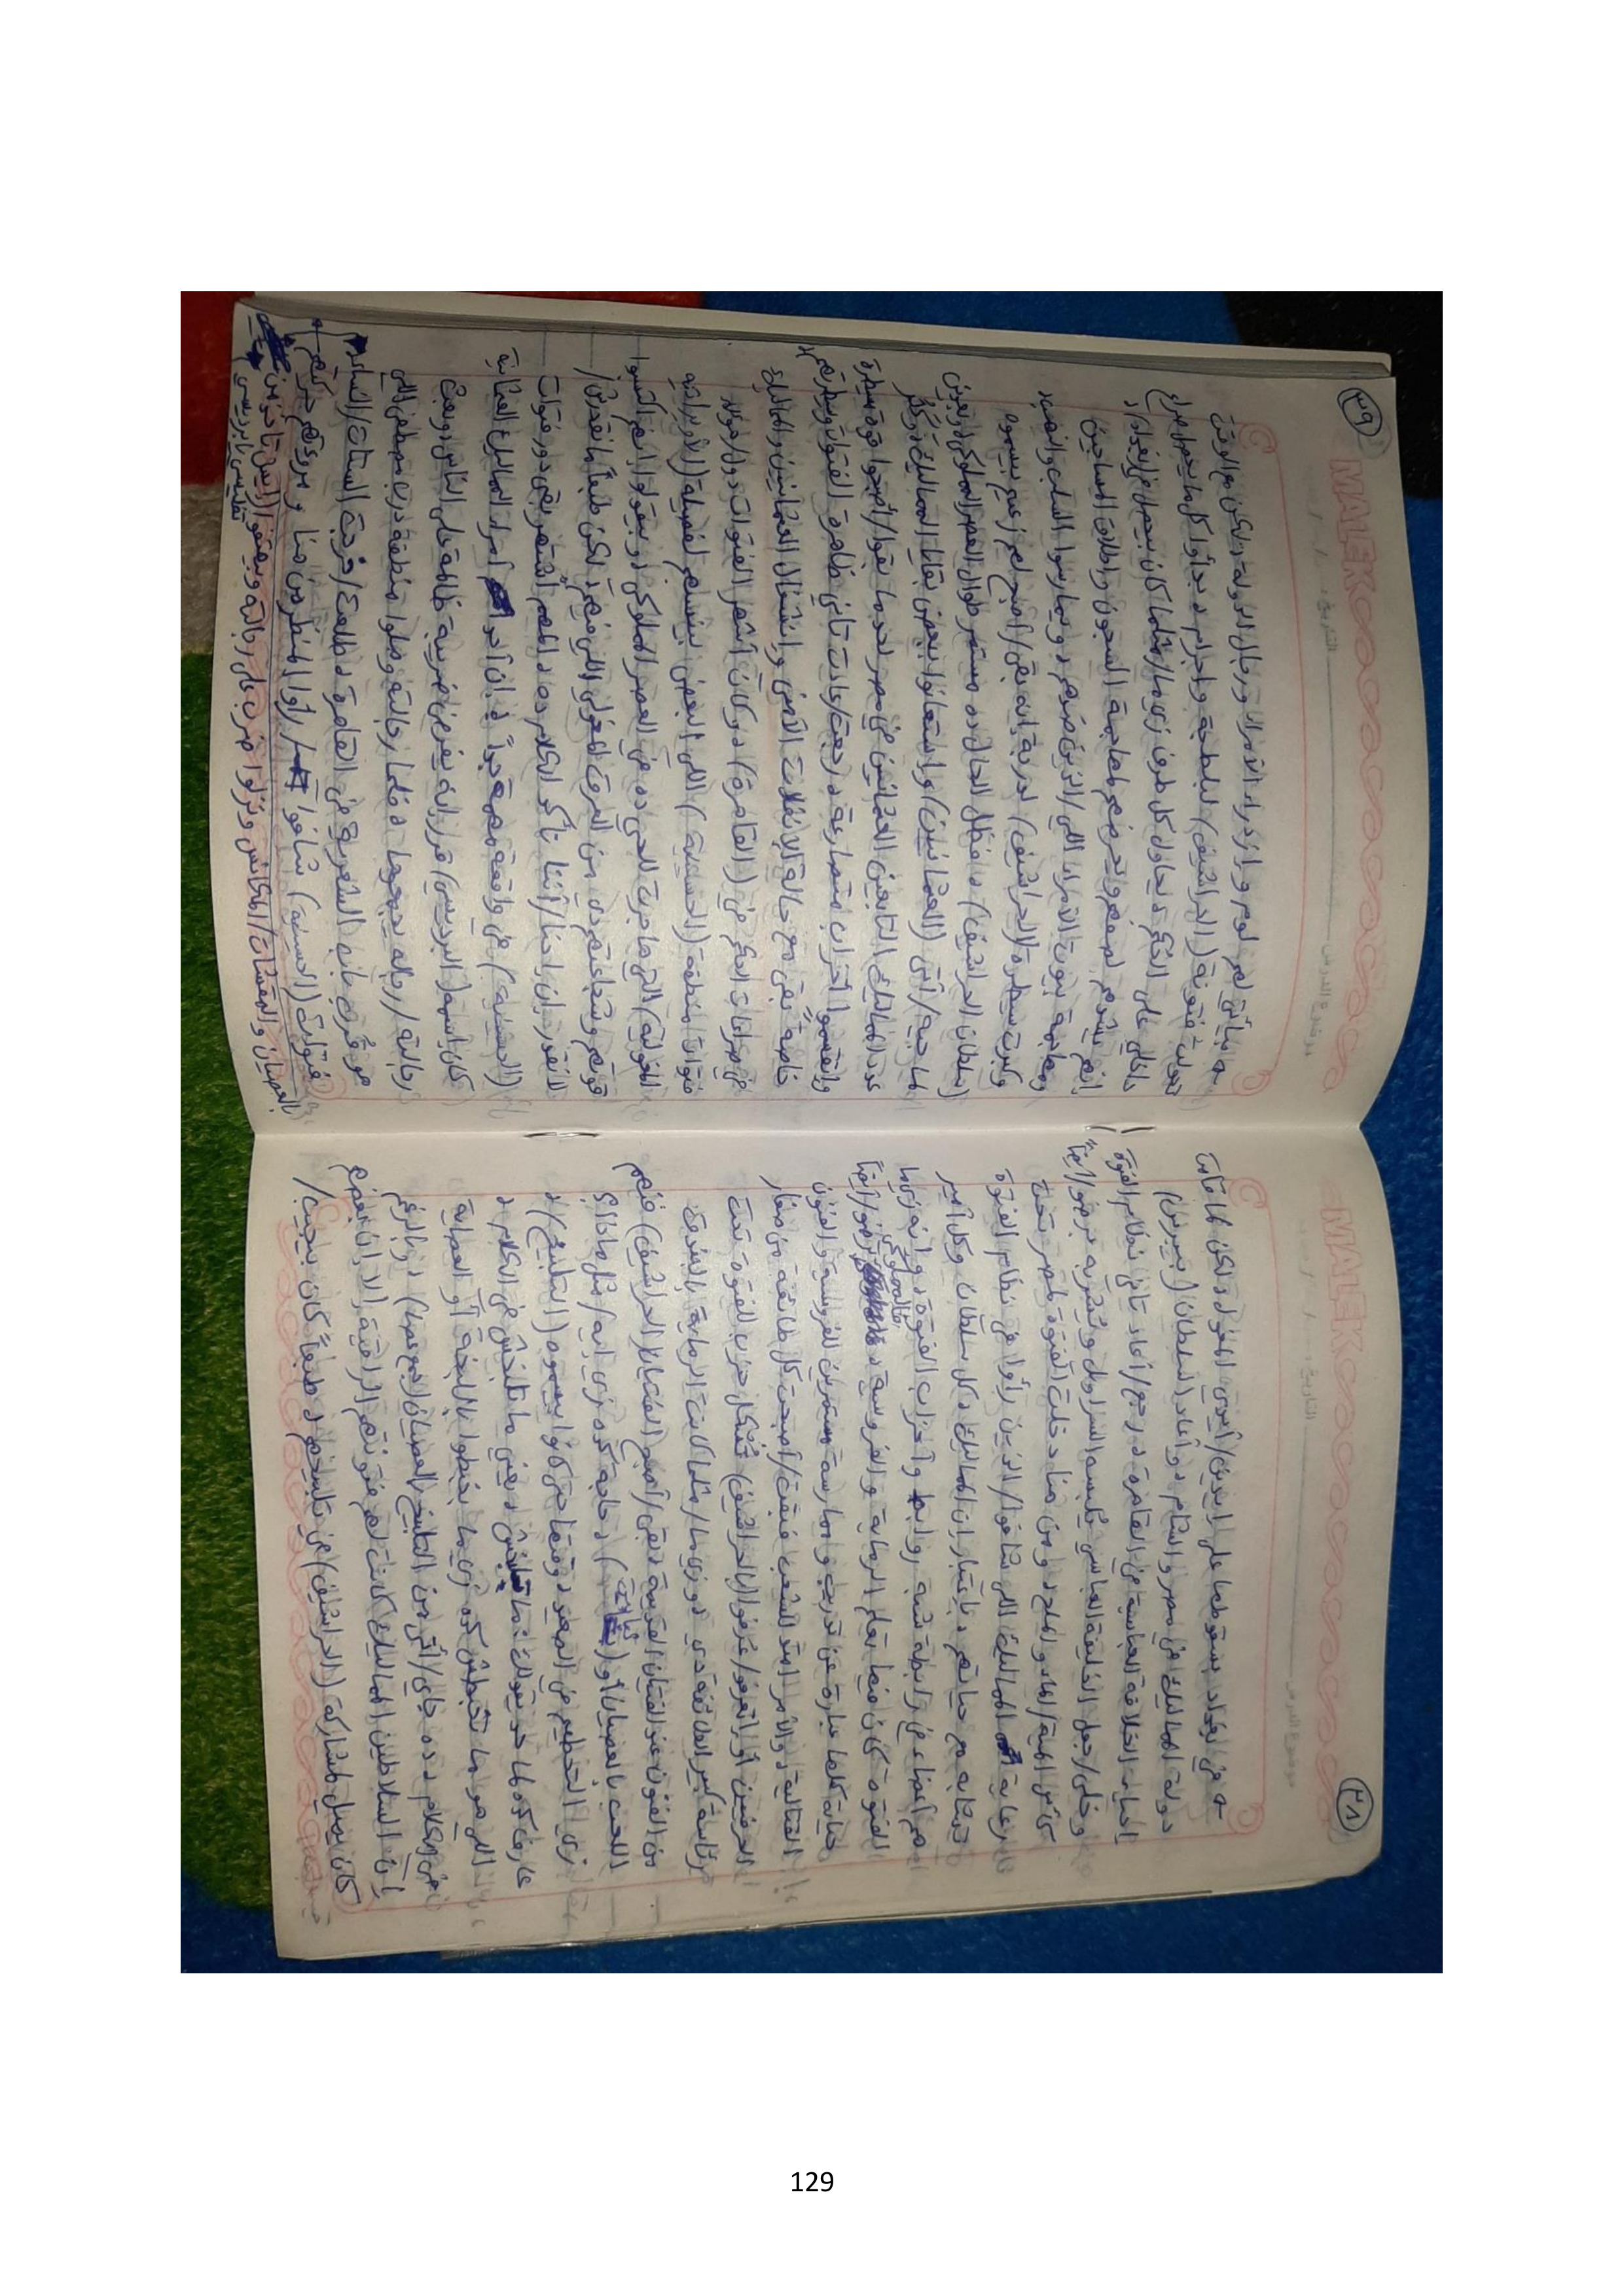 ٣٨
MALEK
التاريخ: / /
موضوع الدرس
في بغداد بسقوطها على ايدين/أيدي المغول د لكن لما قامت
دولة المماليك في مصر والشام د وأعاد السلطان (بيبرس)
إحياء الخلافة العباسية في القاهرة د رجع/أعاد تاني نظام الفتوة
وخلى/وجعل الخليفة العباسي يُلبسه السراويل ويُشربه برضو/أيضاً
كأس المية/الماء والملح د ومن هنا دخلت الفتوة لمصر تحت
رعاية المماليك اللي شافوا/الذين رأوا في نظام الفتوة
تشابه مع حياتهم د باعتبار ان المماليك د كل سلطان وكل أمير
هم أعضاء في رابطة شبه روابط وأحزاب الفتوة د وانه زي ما
الفتوة كان فيها تعلم الرماية والفروسية د فالمملوكي برضو/أيضاً
حياته كلها عبارة عن تدريب وممارسة مستمرين للفروسية والفنون
القتالية د والأمر امتد للشعب فبقت/أصبحت كل طائفة من صغار
الحرفيين أو ما يُعرفو/عُرفوا (بالحرافيش) تُشكل حزب للفتوة تحت
برئاسة كبير الطائفة دي د وزي ما/مثلما كانت الرماية بالبندق
من الفنون عند الفتيان القديمة د بقى/أصبح الفتيان (الحرافيش) فنهم
اللعب بالعصيان أو ( ) د حاجة كده زي ايه/مثل ماذا؟
زي التحطيم في الصعيد د وقتها حتى كانوا بيسموه (التلبيخ) د
عارف كده لما حد يقولك: ما تلبخش د يعني ما تلبخش في الكلام د
اللي هو ما تخبطش كده زي ما بيخبطوا باللبخة أو العصاية
في الكلام د ده جاي/أتى من التلبيخ بالعصيان (جمع عصا) د وبالرغم
إن السلاطين المماليك كانت لهم فتوتهم الراقية إلا إن بعضهم
كان يميل لمشاركة (الحرافيش) في تلبيخهم د طبعاً كان بيجيب/
٣٩
MALEK
التاريخ: / /
موضوع الدرس
بيأتي لهم لوم وازدراء الأمراء ورجال الدولة د لكن مع الوقت
تحولت فتونة (الحرافيش) لبلطجة وإجرام د بدأوا كل ما يحصل صراع
داخلي على الحكم د يحاول كل طرف زي ما/مثلما كان بيحصل في بغداد د
إنهم يشدهم لصفهم وتحريضهم لمهاجمة السجون وإطلاق المساجين
ومهاجمة بيوت الأمراء اللي/الذين ضدهم د ويمارسوا السلب والنهب د
وكبرت سيطرة (الحرافيش) لدرجة إنه بقى/أصبح لهم زعيم بيسموه
(سلطان الحرافيش) د وفضل الحال ده مستمر طوال العصر المملوكي د لحين
لما جيه/أتى (العثمانيين) واستعانوا ببعض بقايا المماليك د وكثر
عدد المماليك التابعين للعثمانيين في مصر لحد ما بقوا/أصبحوا قوة مسيطرة
وانقسموا أحزاب متصارعة د رجعت/عادت تاني ظاهرة الفتوات وسيطرتهم د
خاصة بقى مع حالة الانفلات الأمني وانشغال العثمانيين والمماليك
في صراعات الحكم في (القاهرة) د وكان أشهر الفتوات دول/هؤلاء
فتوات منطقة (الحسينية) اللي البعض بينسبهم لفصيلة (الأويراتية
المغولية) اللي هاجرت للحي ده في العصر المملوكي د وبيقولوا إنهم اكتسبوا
قوتهم وشجاعتهم دي من العرق المغولي اللي فيهم د لكن طبعاً ما نقدرش/
لا نقدر إن إحنا/أننا نأكد الكلام ده د المهم اشتهر بقى دور فتوات
(الحسينية) في واقعة مهمة جداً د إن أحد أمراء المماليك العثمانية
كان اسمه (البرديسي) قرر إنه يفرض ضريبة ظالمة على الناس د وبعت
رجالته/رجاله يجمعوها د فلما رجالته وصلوا منطقة درب مصطفى اللي
هو قُرب باب الشعرية في القاهرة د طلعت/خرجت الستات/النساء د
فتوات (الحسينية) شافوا/رأوا المنظر من هنا ومروءتهم حركتهم
بالعصيان والمقشات/المكانس ونزلوا ضرب على رجالته وبيهتفوا (إيش تاخد من
تفليسي يا برديسي
129